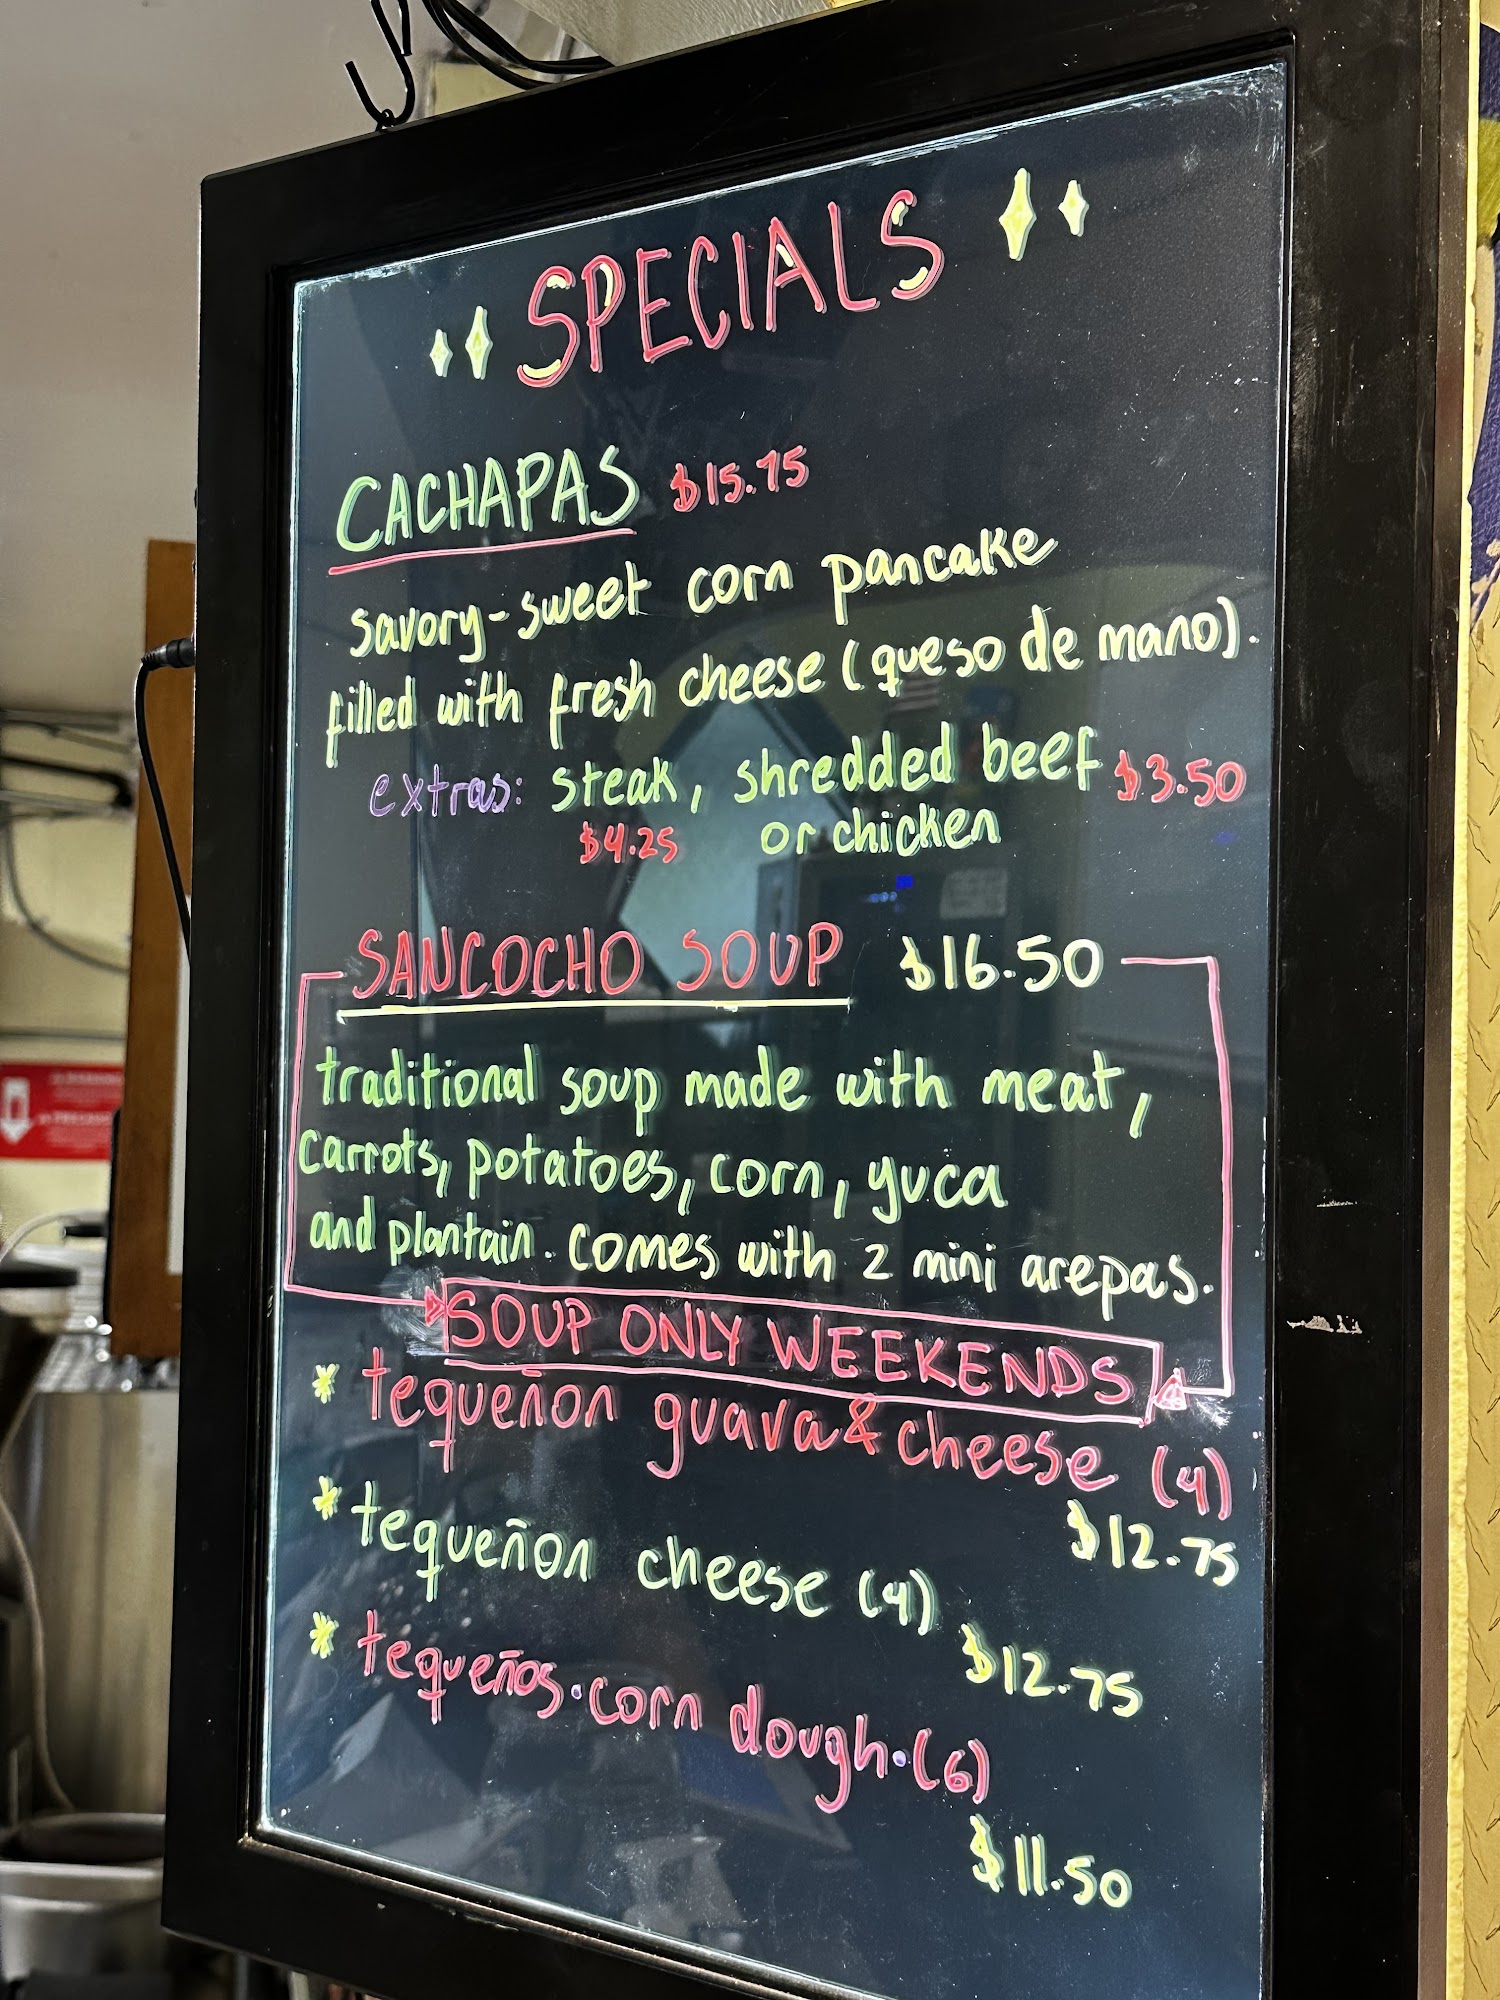 SPECIALS
CACHAPAS $15.75
savory-sweet corn pancake
filled with fresh cheese (queso de mano).
extras: steak, shredded beef $3.50
$4.25 or chicken
SANCOCHO SOUP $16.50
traditional soup made with meat,
carrots, potatoes, corn, yuca
and plantain. comes with 2 mini arepas.
SOUP ONLY WEEKENDS
* tequeñon guava & cheese (4)
$12.75
* tequeñon cheese (4)
$12.75
* tequeños·corn dough·(6)
$11.50